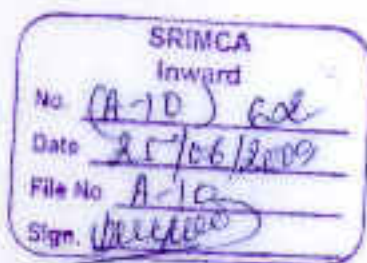 SRIMCA
Inward
No. (A-10) 62
Date 25/06/2009
File No A-10
Sign.